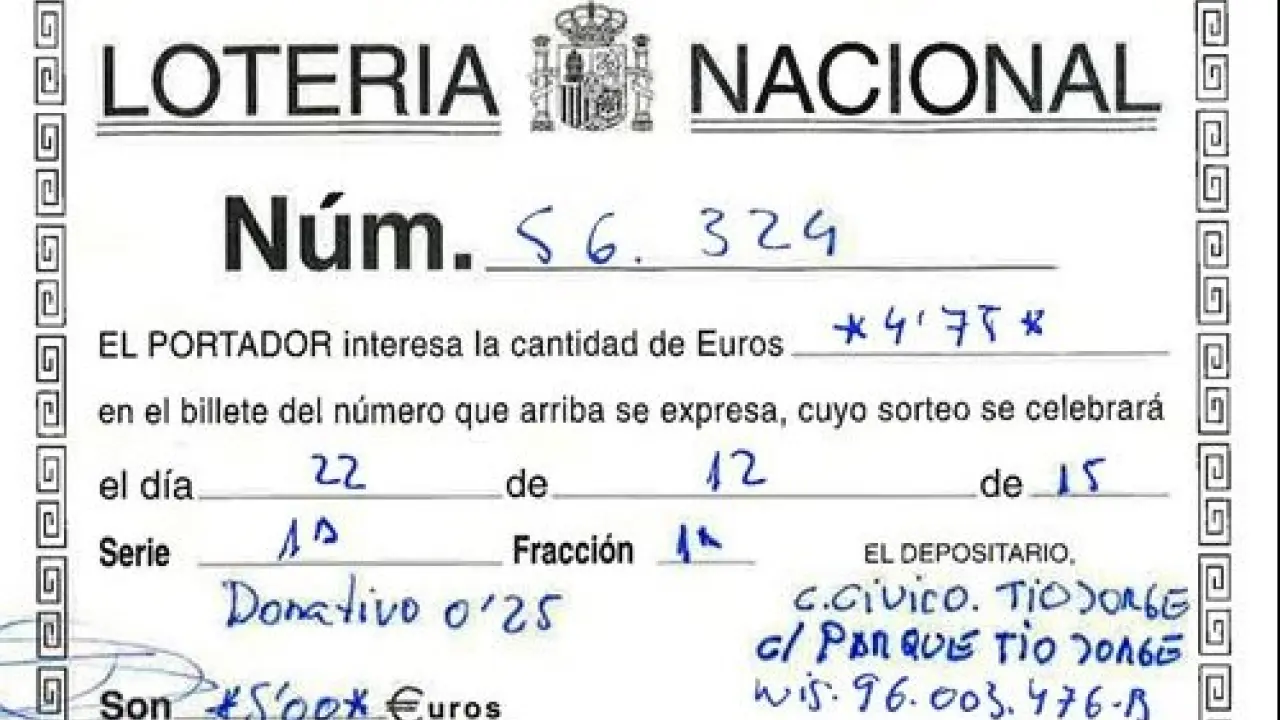 LOTERIA NACIONAL
Núm. 56.324
EL PORTADOR interesa la cantidad de Euros *4'75*
en el billete del número que arriba se expresa, cuyo sorteo se celebrará
el día 22 de 12 de 15
Serie 1ª Fracción 1ª EL DEPOSITARIO,
Donativo 0'25 C.CIVICO. TIO JORGE
C/ PARQUE TIO JORGE
96.003.476-B
Son *5'00* €uros